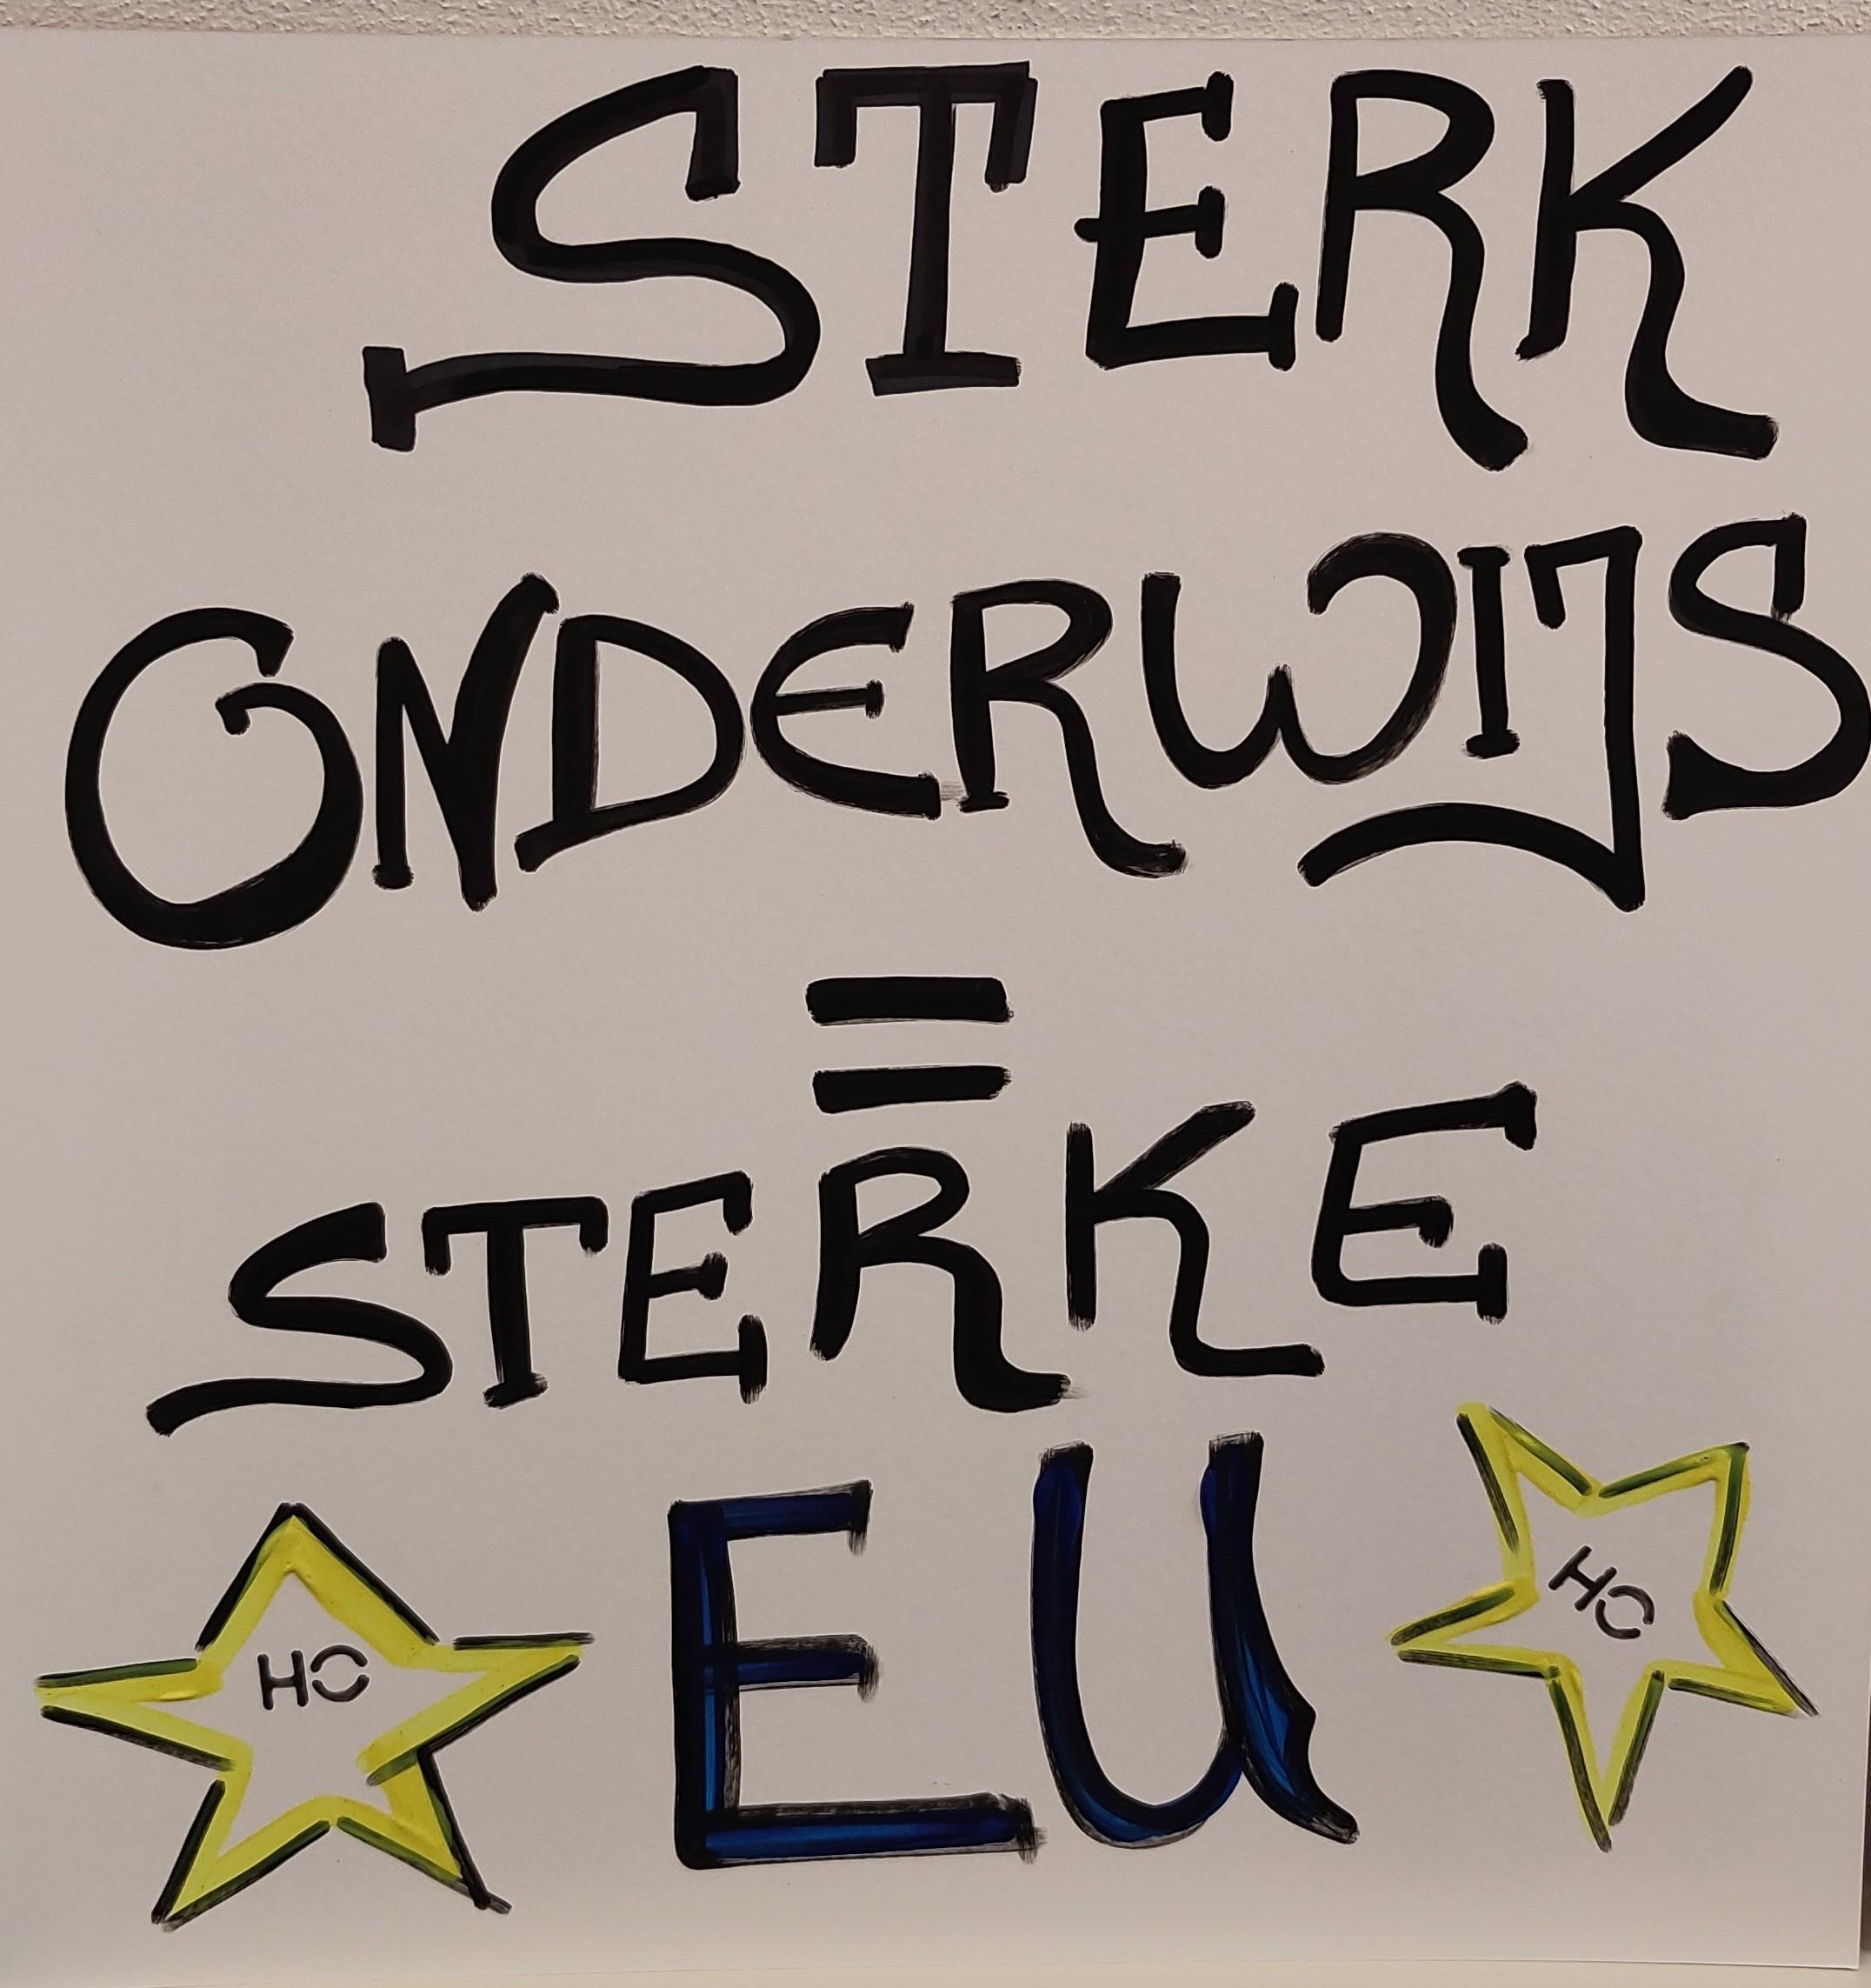 STERK
ONDERWIJS
=
STERKE
EU
HO
HO